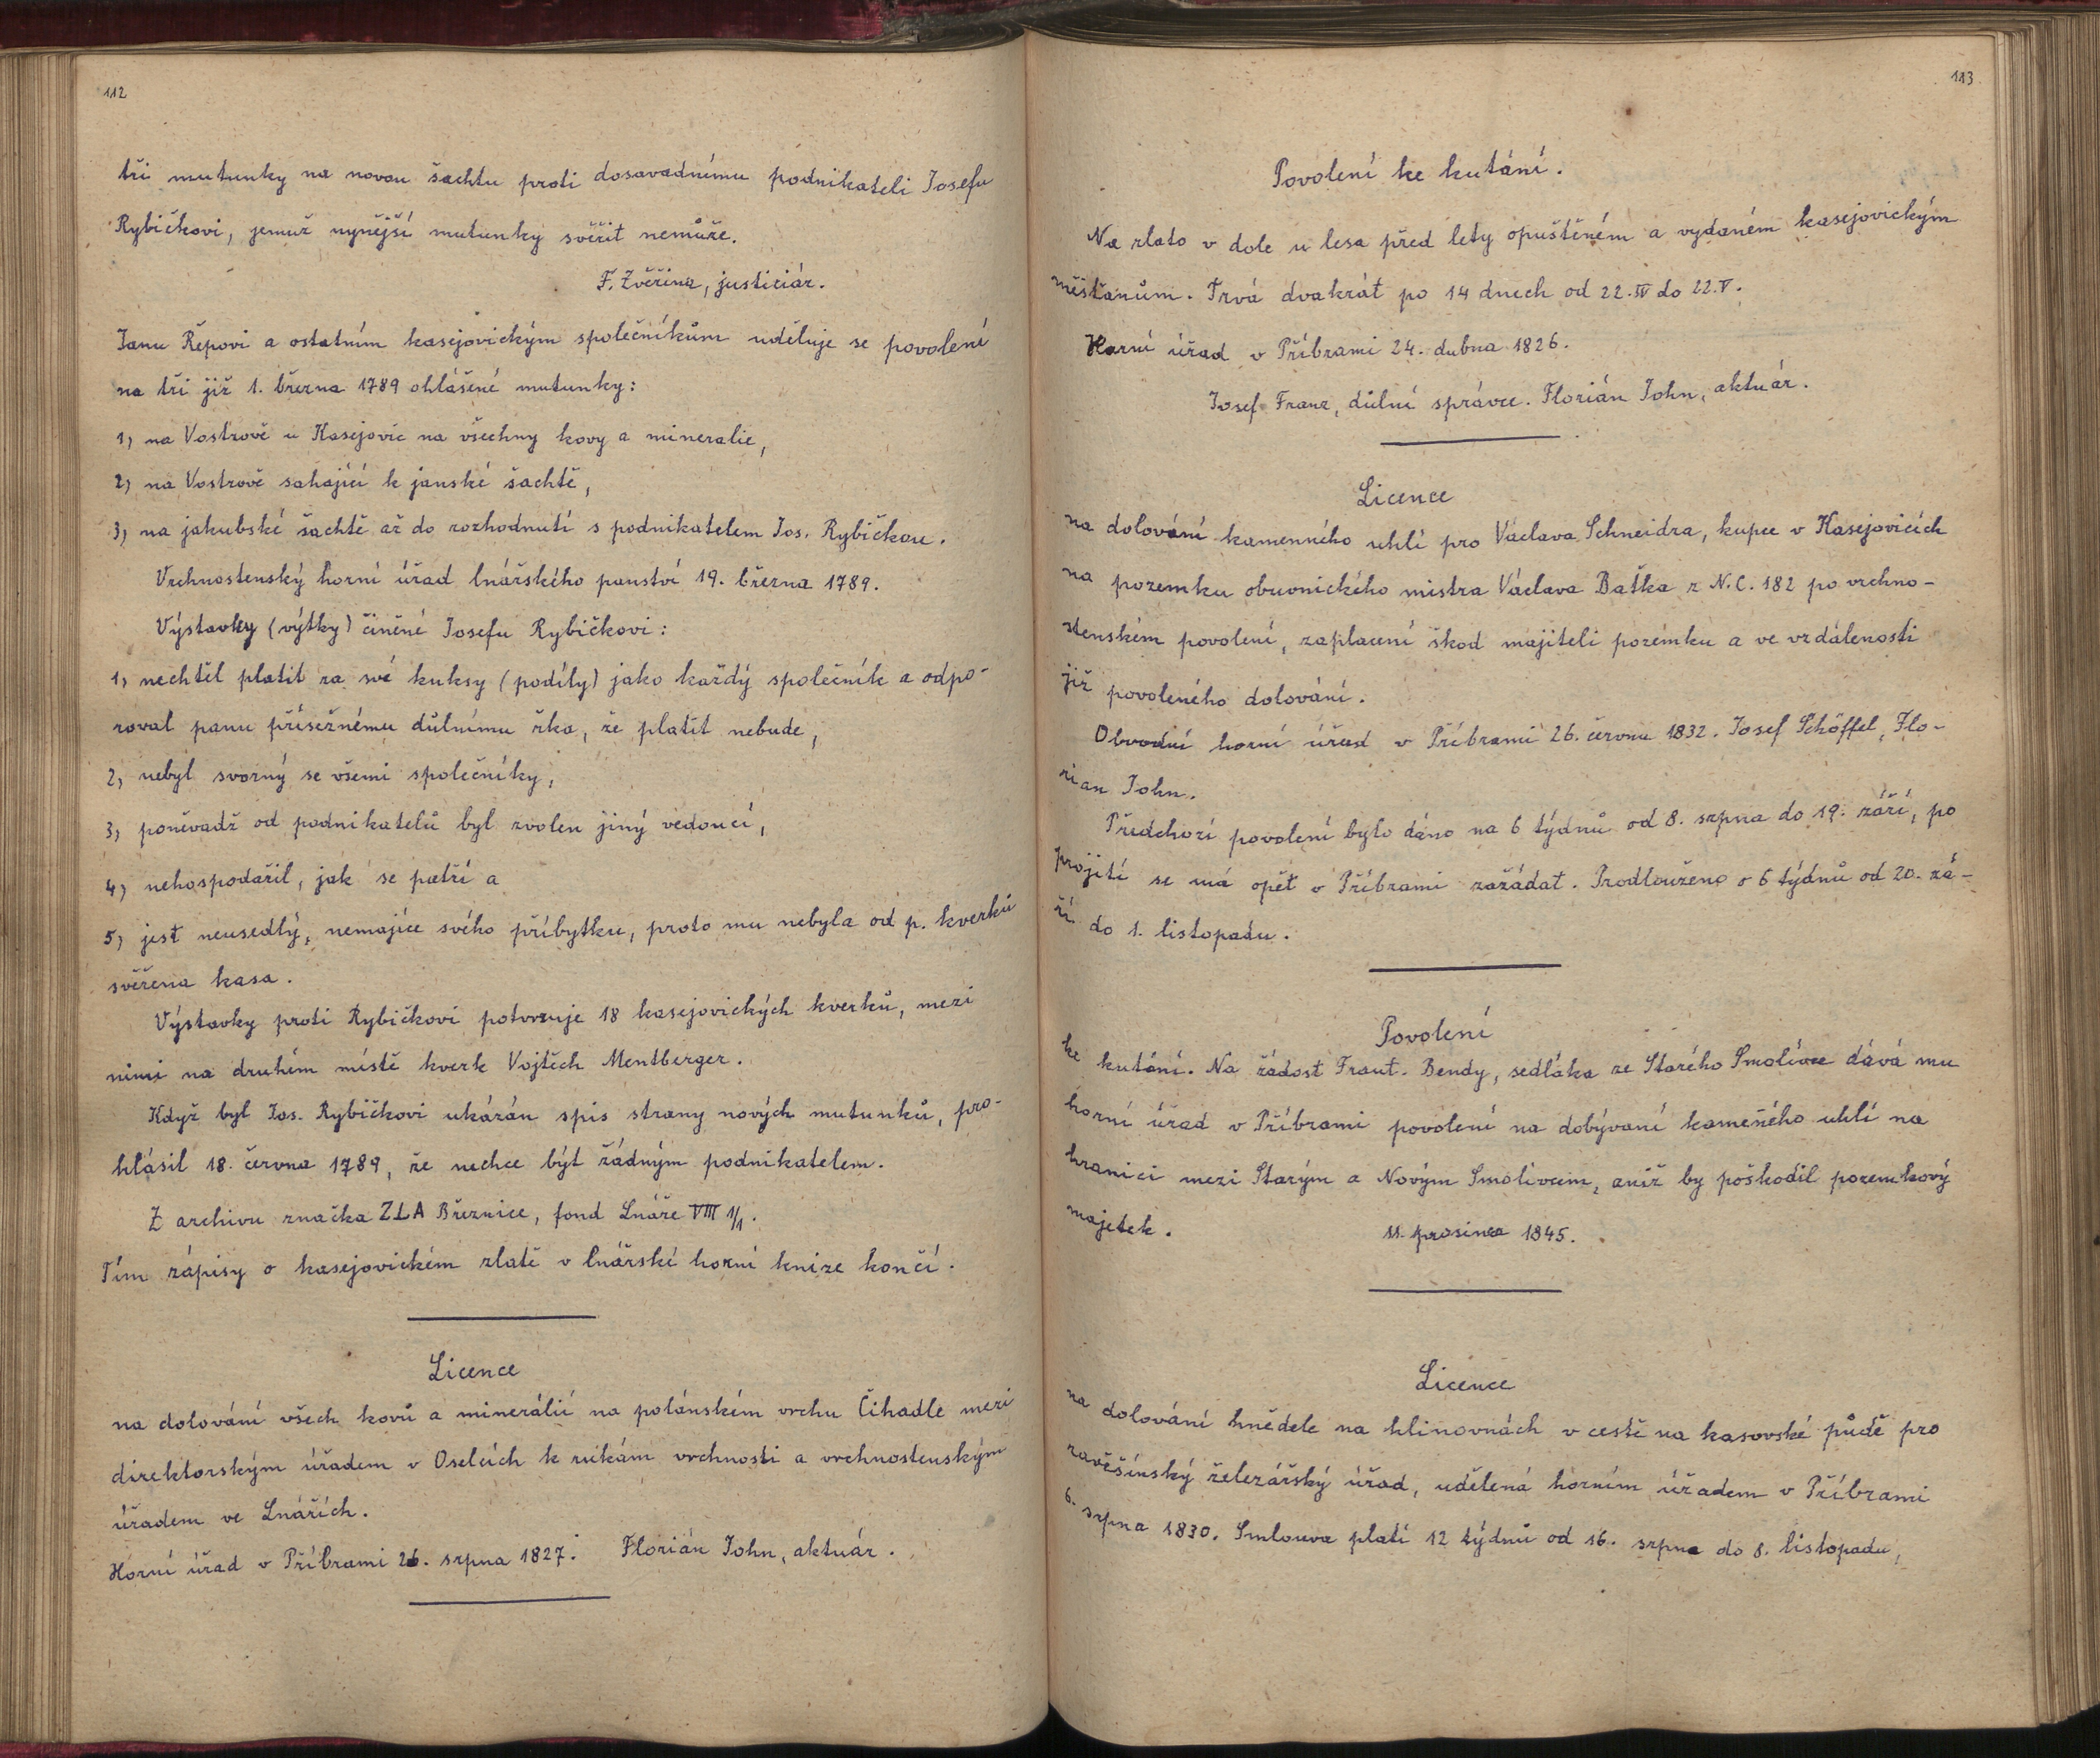 112
tři mutunky na novou šachtu proti dosavadnímu podnikateli Josefu
Rybičkovi, jemuž nynější mutunky svěřit nemůže.
F. Zvěřina, justiciár.
Janu Řepovi a ostatním kasejovickým společníkům uděluje se povolení
na tři již 1. března 1789 ohlášené mutunky:
1) na Vostrově u Kasejovic na všechny kovy a mineralie,
2) na Vostrově sahající k janské šachtě,
3) na jakubské šachtě až do rozhodnutí s podnikatelem Jos. Rybičkou.
Vrchnostenský horní úřad lnářského panství 19. března 1789.
Výstavky (výtky) činěné Josefu Rybičkovi:
1) nechtěl platit za své kuksy (podíly) jako každý společník a odpo-
roval panu přísežnému důlnímu řka, že platit nebude,
2) nebyl svorný se všemi společníky,
3) poněvadž od podnikatelů byl zvolen jiný vedoucí,
4) nehospodařil, jak se patří a
5) jest neusedlý, nemajíce svého příbytku, proto mu nebyla od p. kverků
svěřena kasa.
Výstavky proti Rybičkovi potvrzuje 18 kasejovických kverků, mezi
nimi na druhém místě kverk Vojtěch Mentberger.
Když byl Jos. Rybičkovi ukázán spis strany nových mutunků, pro-
hlásil 18. června 1789, že nechce být žádným podnikatelem.
Z archivu značka ZLA Březnice, fond Lnáře VIII 1/1.
Tím zápisy o kasejovickém zlatě v lnářské horní knize končí.
Licence
na dolování všech kovů a minerálií na polánském vrchu Čihadle mezi
direktorským úřadem v Oselcích k rukám vrchnosti a vrchnostenským
úřadem ve Lnářích.
Horní úřad v Příbrami 26. srpna 1827. Florián John, aktuár.
113
Povolení ke kutání.
Na zlato v dole u lesa před lety opuštěném a vydaném kasejovickým
měšťanům. Trvá dvakrát po 14 dnech od 22. IV do 22. V.
Horní úřad v Příbrami 24. dubna 1826.
Josef Franz, důlní správce. Florián John, aktuár.
Licence
na dolování kamenného uhlí pro Václava Schneidra, kupce v Kasejovicích
na pozemku obuvnického mistra Václava Baťka z N. C. 182 po vrchno-
stenském povolení, zaplacení škod majiteli pozemku a ve vzdálenosti
již povoleného dolování.
Obvodní horní úřad v Příbrami 26. červnu 1832. Josef Schöffel, Flo-
rian John.
Předchozí povolení bylo dáno na 6 týdnů od 8. srpna do 19. září, po
projití se má opět v Příbrami zažádat. Prodlouženo o 6 týdnů od 20. zá-
ří do 1. listopadu.
Povolení
ke kutání. Na žádost Frant. Bendy, sedláka ze Starého Smolivce dává mu
horní úřad v Příbrami povolení na dobývaní kameného uhlí na
hranici mezi Starým a Novým Smolivcem, aniž by poškodil pozemkový
majetek. 11. prosince 1845.
Licence
na dolování hnědele na hlinovnách v cestě na kasovské půdě pro
zavěšínský železářský úřad, udělená horním úřadem v Příbrami
6. srpna 1830. Smlouva platí 12 týdnů od 16. srpna do 8. listopadu,